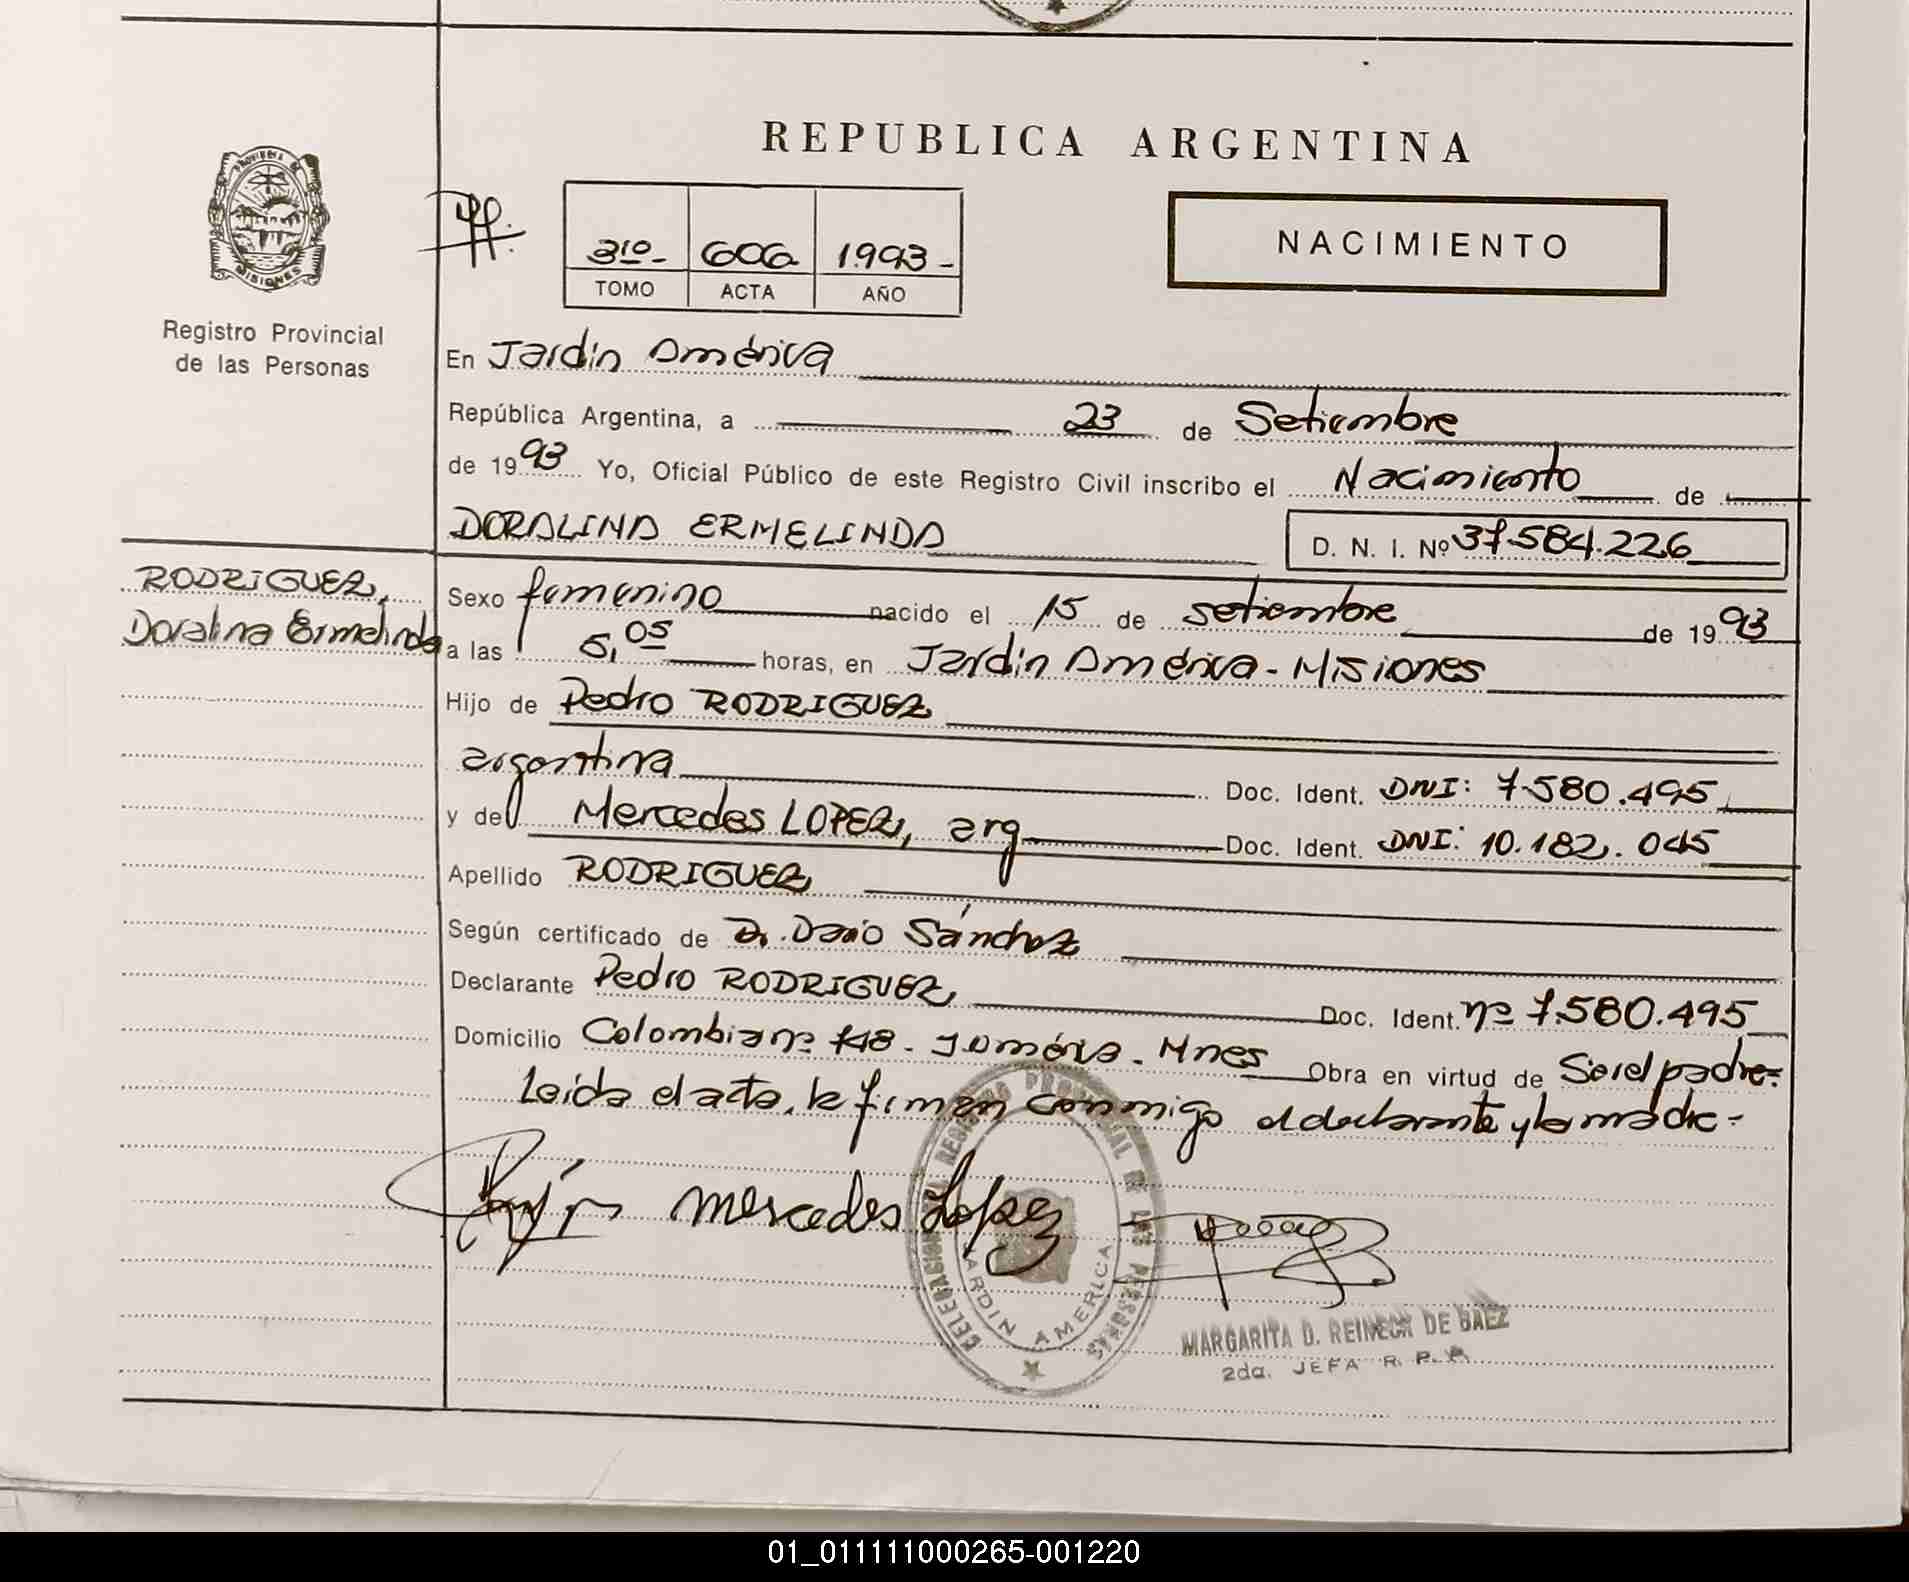 REPUBLICA ARGENTINA
PROVINCIA DE
MISIONES
Registro Provincial
de las Personas
3ro - 606 1.993 -
TOMO ACTA AÑO
NACIMIENTO
En Jardín América
República Argentina, a 23 de Setiembre
de 19 93 Yo, Oficial Público de este Registro Civil inscribo el Nacimiento de
DORALINA ERMELINDA D. N. I. Nº 37.584.226
RODRIGUEZ,
Doralina Ermelinda
Sexo femenino nacido el 15 de setiembre de 19 93
a las 5,05 horas, en Jardín América - Misiones
Hijo de Pedro RODRIGUEZ
argentina Doc. Ident. DNI: 7.580.495
y de Mercedes LOPEZ, arg Doc. Ident. DNI: 10.182.045
Apellido RODRIGUEZ
Según certificado de Dr. Dario Sánchez
Declarante Pedro RODRIGUEZ, Doc. Ident. nº 7.580.495
Domicilio Colombia nº 748 - J. América - Mnes Obra en virtud de Ser el padre-
Leída el acta, la firman conmigo el declarante y la madre -
mercedes Lopez
DELEGACION DEL REGISTRO PROVINCIAL DE LAS PERSONAS
JARDIN AMERICA
MARGARITA D. REINECK DE BAEZ
2da. JEFA R. P. P.
01_011111000265-001220